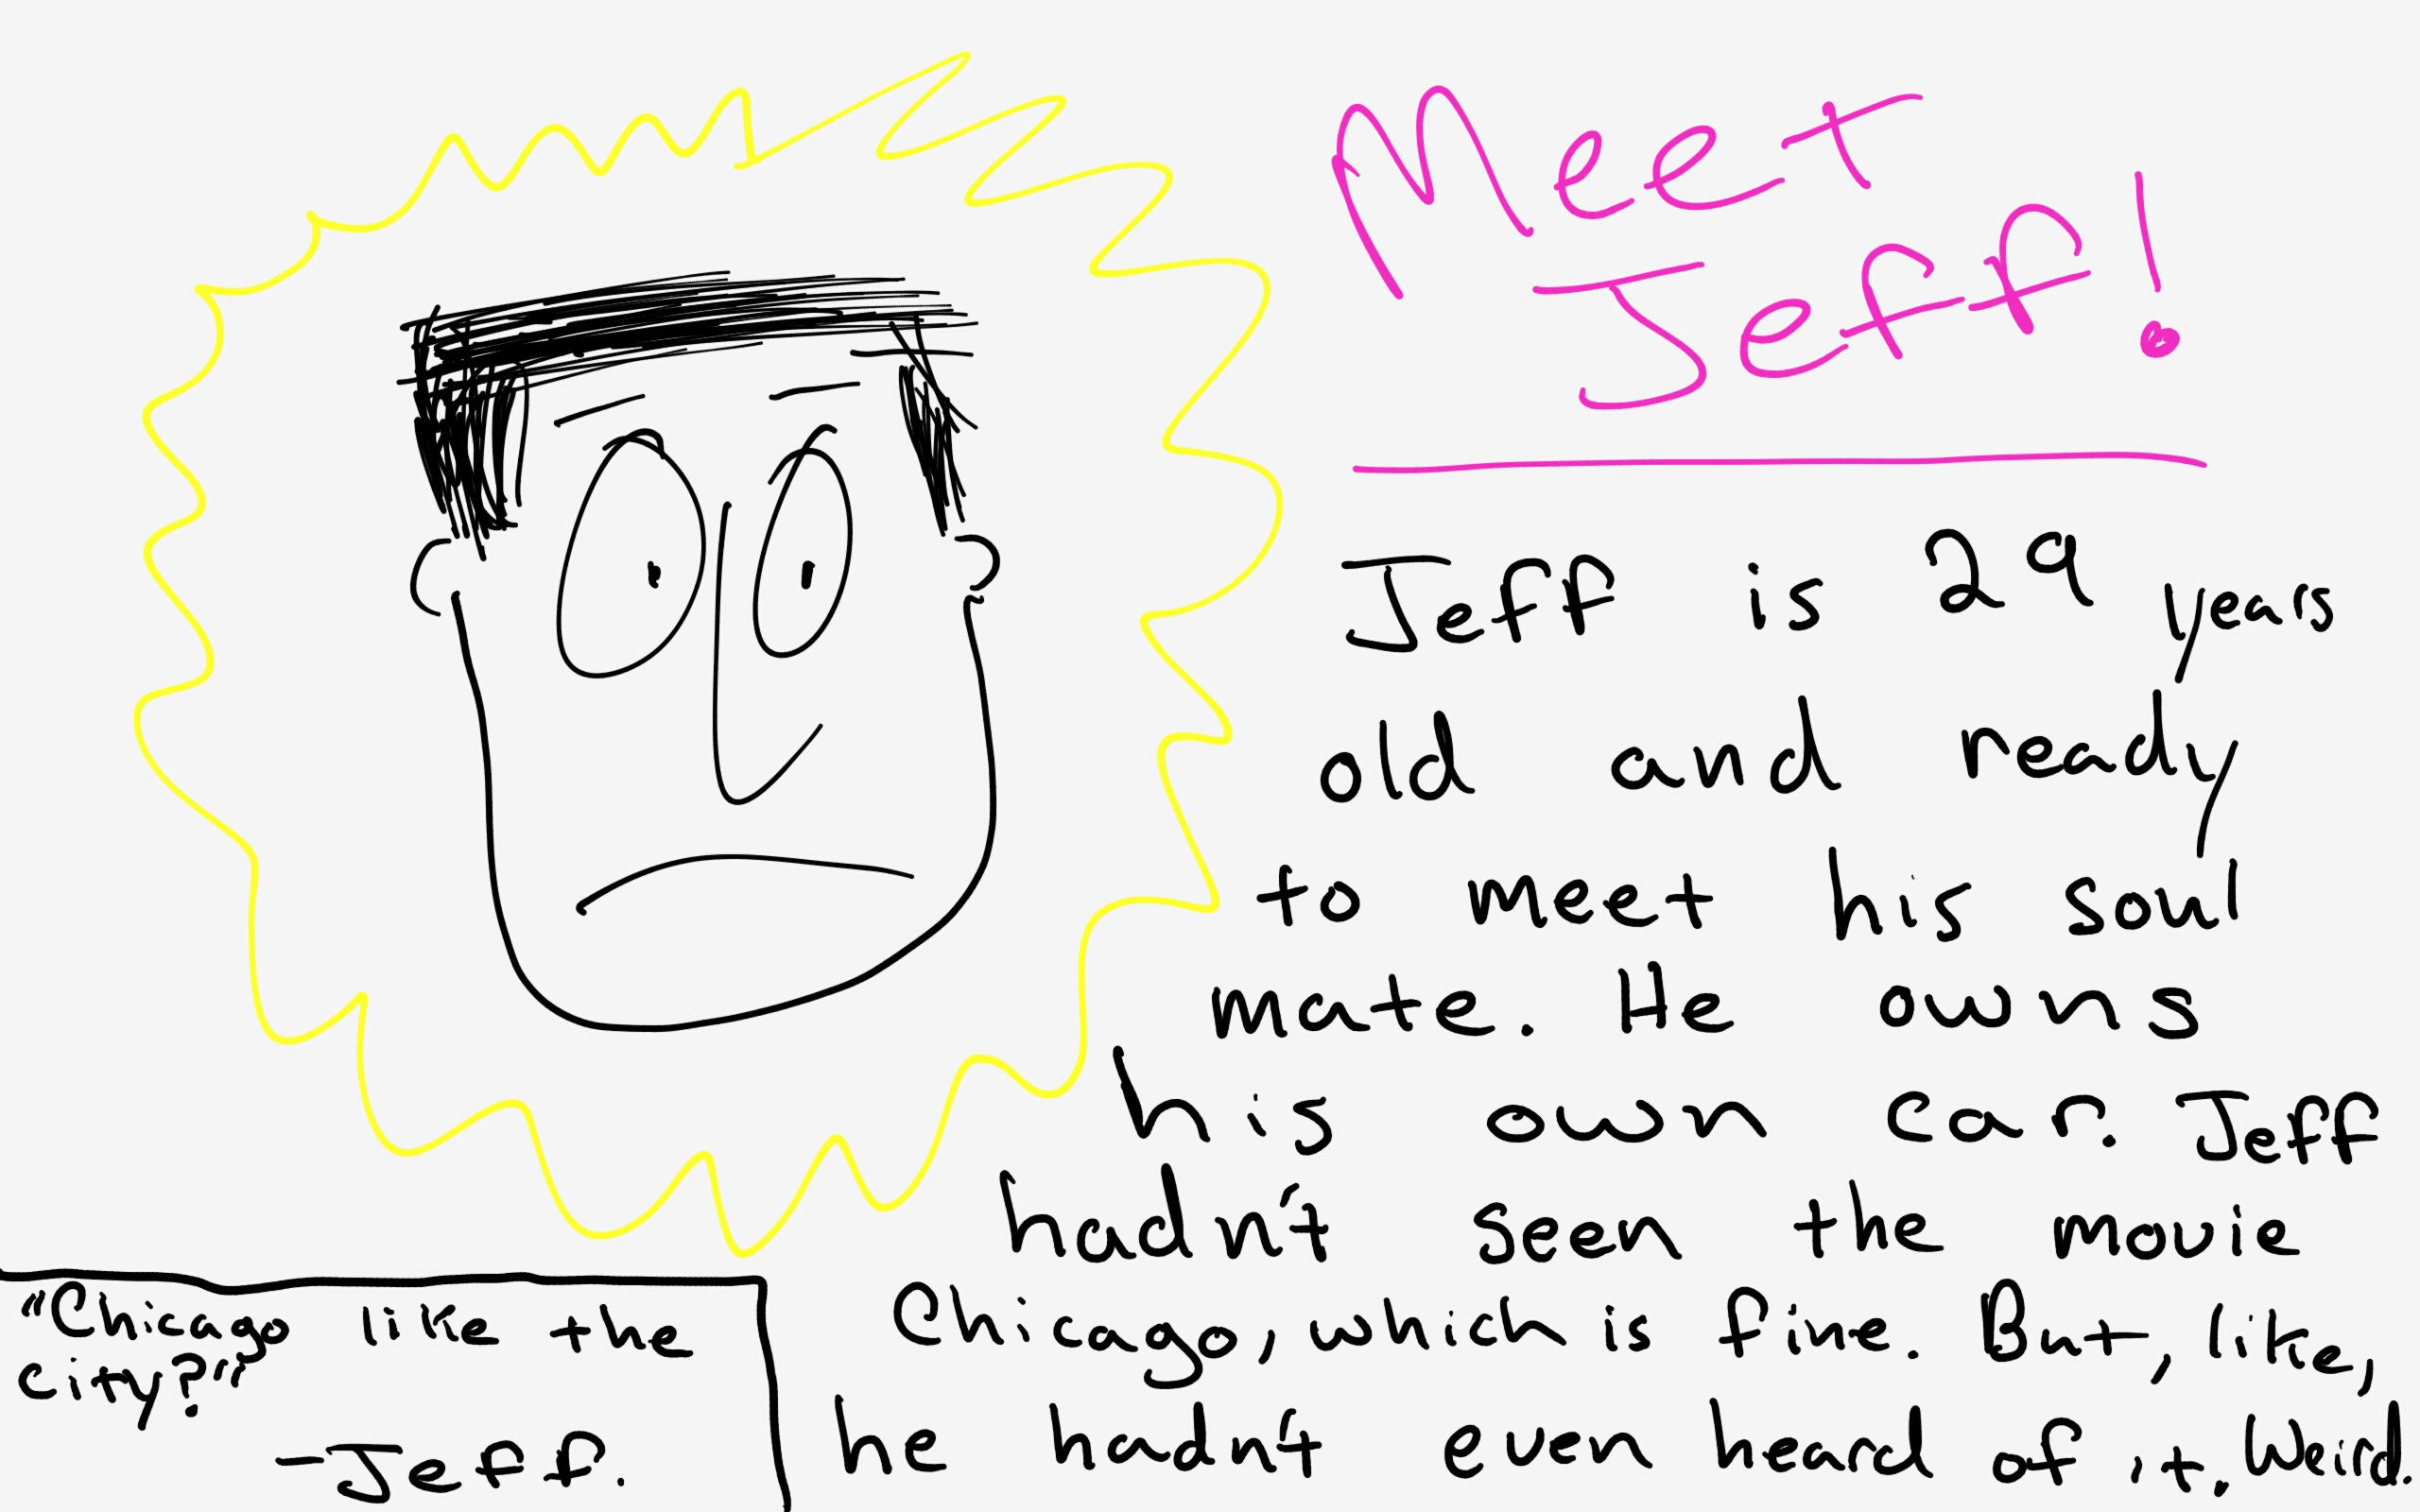 Meet
Jeff!
Jeff is 29 years
old and ready
to meet his soul
mate. He owns
his own car. Jeff
hadn't seen the movie
Chicago, which is fine. But, like,
he hadn't even heard of it. Weird.
"Chicago like the
city?"
-Jeff.